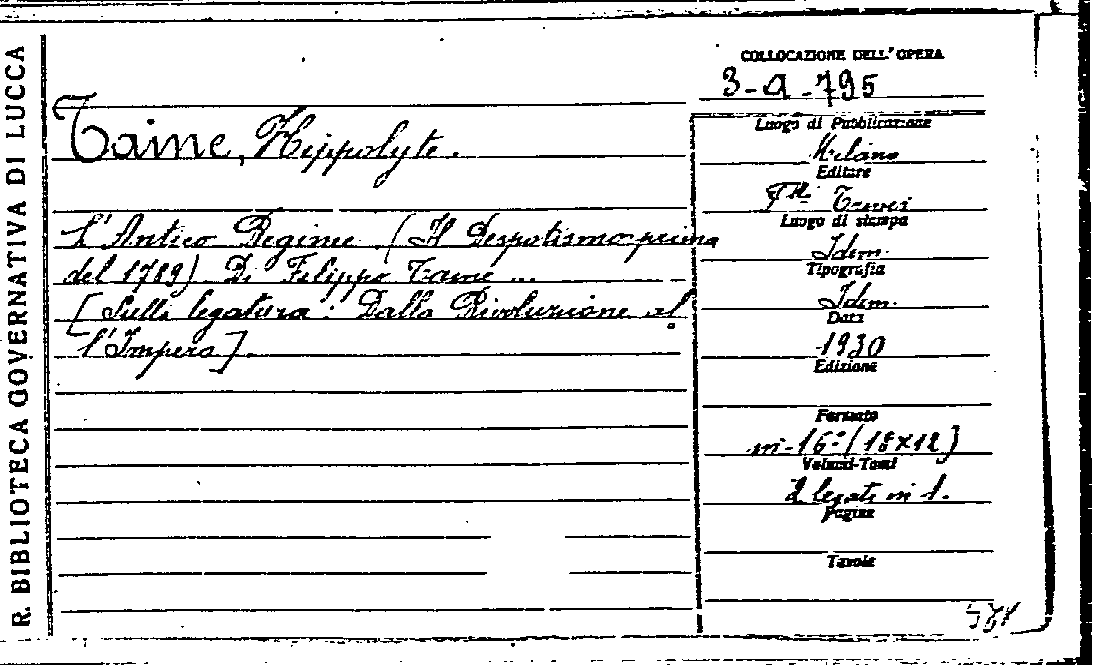 R. BIBLIOTECA GOVERNATIVA DI LUCCA
Taine, Hippolyte.
L'Antico Regime (Il Despotismo prima
del 1789) Di Filippo Taine ...
[Sulla legatura: Dalla Rivoluzione al
l'Impero].
COLLOCAZIONE DELL'OPERA
3-a-795
Luogo di Pubblicazione
Milano
Editore
F.lli Treves
Luogo di stampa
Idem.
Tipografia
Idem.
Data
1930
Edizione
Formato
in-16° (18x12)
Volumi-Tomi
2 legati in 1.
Pagine
Tavole